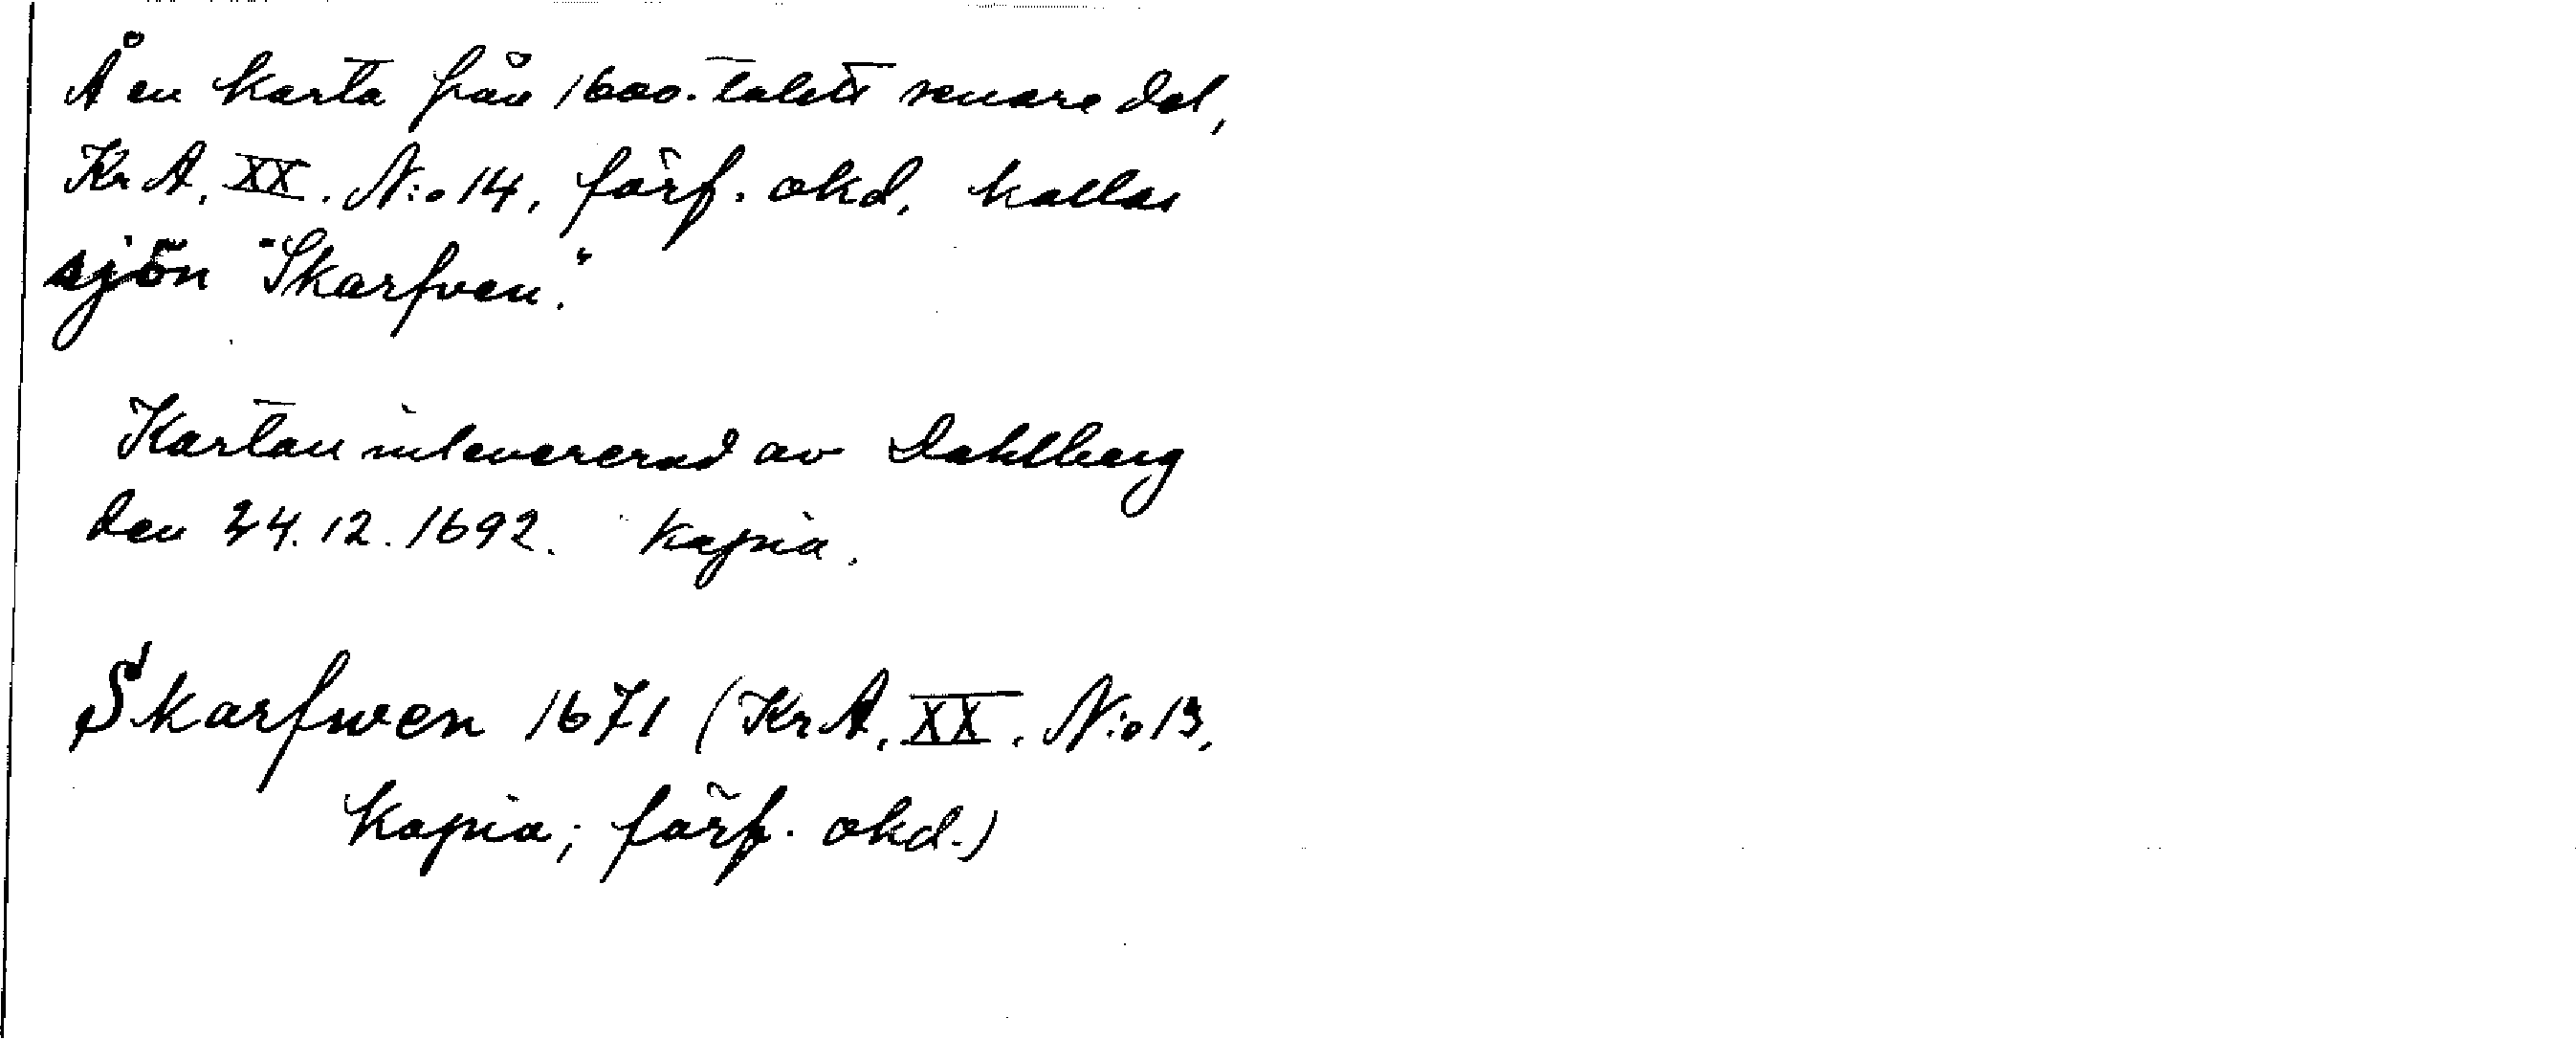 Å en karta från 1600-talets senare del,
Kr A. XX. N:o 14, förf. okd. kallas
sjön "Skarfven."
Kartan inlevererad av Dahlberg
den 24.12.1692. Kopia.
Skarfwen 1671 (Kr A. XX. N:o 13,
Kopia; förf. okd.)